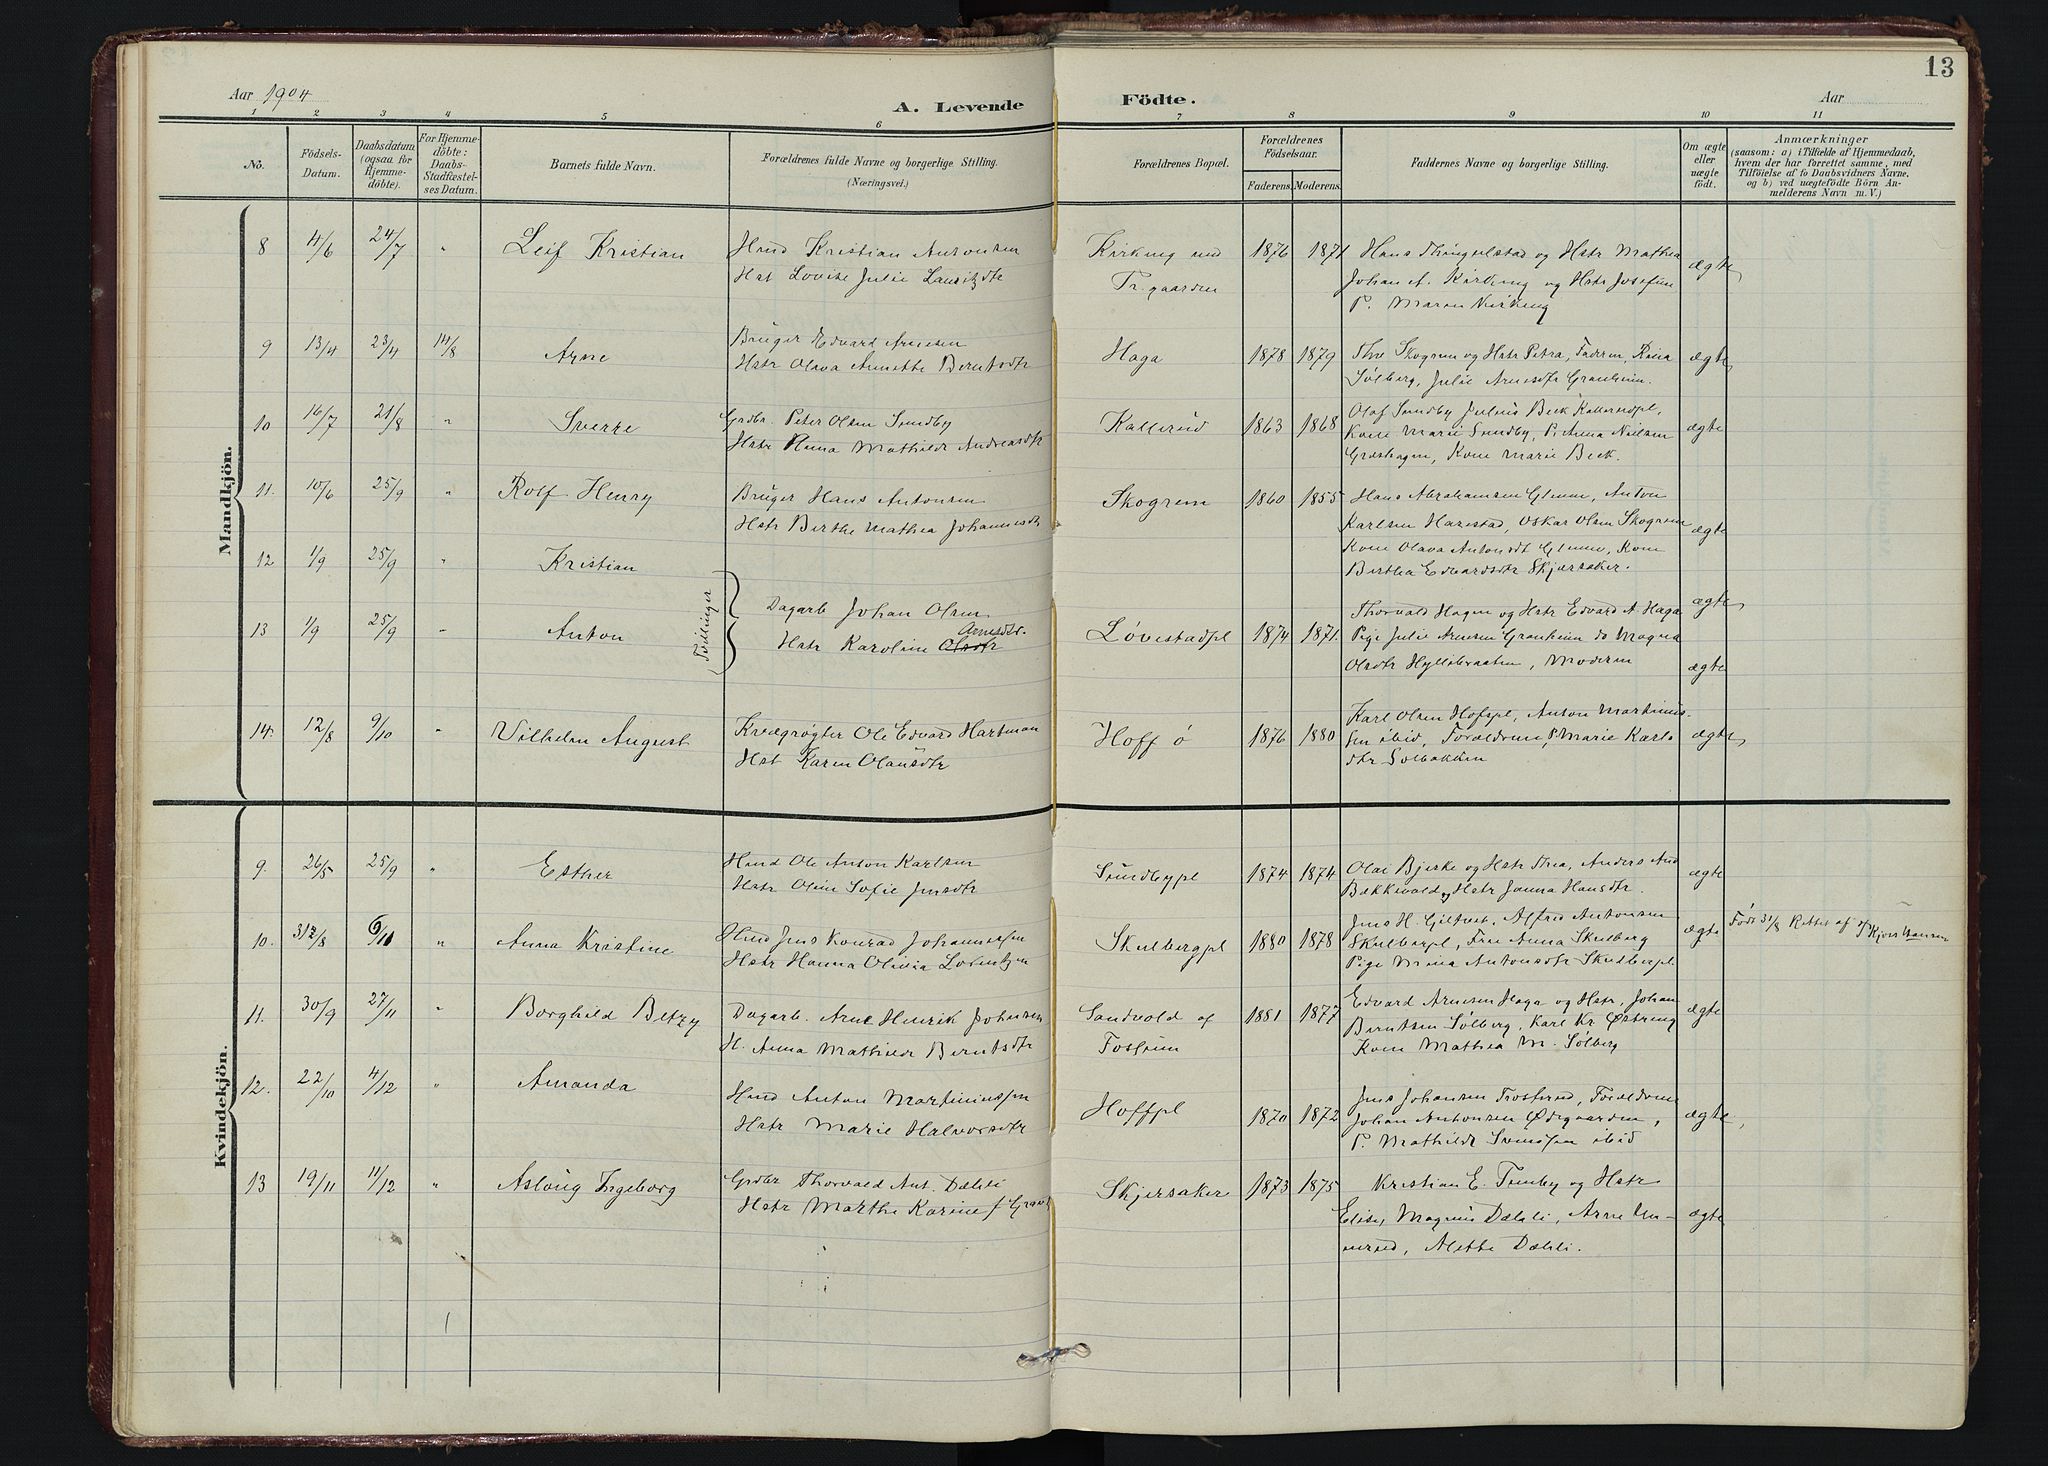 13
Aar 1904
A. Levende Födte.
Aar
1 2 3 4 5 6 7 8 9 10 11
No. Födsels-Datum. Daabsdatum (ogsaa for Hjemme-döbte). For Hjemme-döbte: Daabs-Stadfæstel-ses Datum. Barnets fulde Navn. Forældrenes fulde Navne og borgerlige Stilling. (Næringsvei.) Forældrenes Bopæl. Forældrenes Födselsaar. Faderens. Moderens. Faddernes Navne og borgerlige Stilling. Om ægte eller uægte födt. Anmærkninger (saasom: a) i Tilfælde af Hjemmedaab, hvem der har forrettet samme, med Tilföielse af to Daabsvidners Navne, og b) ved uægtefödte Börn An-melderens Navn m. V.)
Mandkjön.
8 4/6 24/7 " Leif Kristian Hmd Kristian Antonsen Kirkeng 1876 1871 Hans Thingelstad og Hstr Mathea ægte
Hst Lovise Julie Lauritzdtr Tr.gaarden Johan A. Kirkeng og Hstr Josefine
P. Maren Kirkeng
9 13/4 23/4 14/8 Arne Bruger Edvard Arnesen Haga 1878 1879 Skogrem og Hstr Petra, Faderen, Rina ægte
Hstr Olava Annette Berntsdtr Sølberg, Julie Arnesdtr Granheim.
10 16/7 21/8 " Sverre Grdbr. Peter Olsen Sundby Kallerud 1863 1868 Olaf Sundby Julius Beck Kallerudpl, ægte
Hstr Anna Mathilde Andreasdtr Kone Marie Sundby, P. Anna Nielsen
Græshagen, Kone Marie Beck.
11. 10/6 25/9 " Rolf Henry Bruger Hans Antonsen Skogrem 1860 1855 Hans Abrahamsen Glenne, Anton ægte
Hstr Berthe Mathea Johannesdtr Karlsen Harestad, Oskar Olsen Skogrem
Kone Olava Antonsdt Glenne, Kone
Berthea Edvardsdtr Skjærsaker.
12 1/9 25/9 " Kristian ægte
Tvillinger
Dagarb Johan Olsen Thorvald Hagen og Hstr Edvard A. Haga
13 1/9 25/9 " Anton Hstr Karoline Olsdtr Arnesdtr. Løvestadpl 1874 1871. Pige Julie Arnesen Granheim do Magna ægte
Olsdtr Hyllibraaten, Moderen
14. 12/8 9/10 " Vilhelm August Kvægrøgter Ole Edvard Hartman Hoff ø 1876 1880 Karl Olsen Hofspl, Anton Martinus- ægte
Hst Karen Olausdtr sen ibid, Forældrene, P. Marie Karls
dtr Solbakken
Kvindekjön.
9. 26/5 25/9 " Esther Hmd Ole Anton Karlsen Sundbypl 1874 1874 Olai Bjerke og Hstr Thea, Anders And ægte
Hstr Oline Sofie Jensdtr Bækkevold og Hstr Janna Hansdtr.
10. 31/8 6/11 " Anna Kristine Hmd Jens Konrad Johannessen Skulbergpl 1880 1878 Jens H. Gjltvet, Alfred Antonsen ægte Født 31/8 Rettet af
Hstr Hanna Olivia Lorentzen Skulbergpl, Frue Anna Skulberg
Pige Mina Antonsdtr Skulbergpl
11. 30/9 27/11 " Borghild Betzy Dagarb. Arne Henrik Johansen Sandvold af 1881 1877 Edvard Arnesen Haga og Hstr, Johan ægte
H. Anna Mathilde Berntsdtr Fosheim Berntsen Sølberg, Karl Kr Østreng
Kone Mathea M. Sølberg
12. 22/10 4/12 " Amanda Hmd Anton Martiniussen Hoffpl 1870 1872 Jens Johansen Trosterud, Forældrene ægte
Hstr Marie Halvorsdtr Johan Antonsen Ødegaarden,
P. Mathilde Svendsen ibid
13 19/11 11/12 " Aslaug Ingeborg Grdbr Thorvald Ant. Dæhli Skjersaker 1873 1875 Kristian E. Tomby og Hstr ægte
Hstr Marthe Karine f Elise, Magnus Dæhli, Arne
Alette Dæhli.